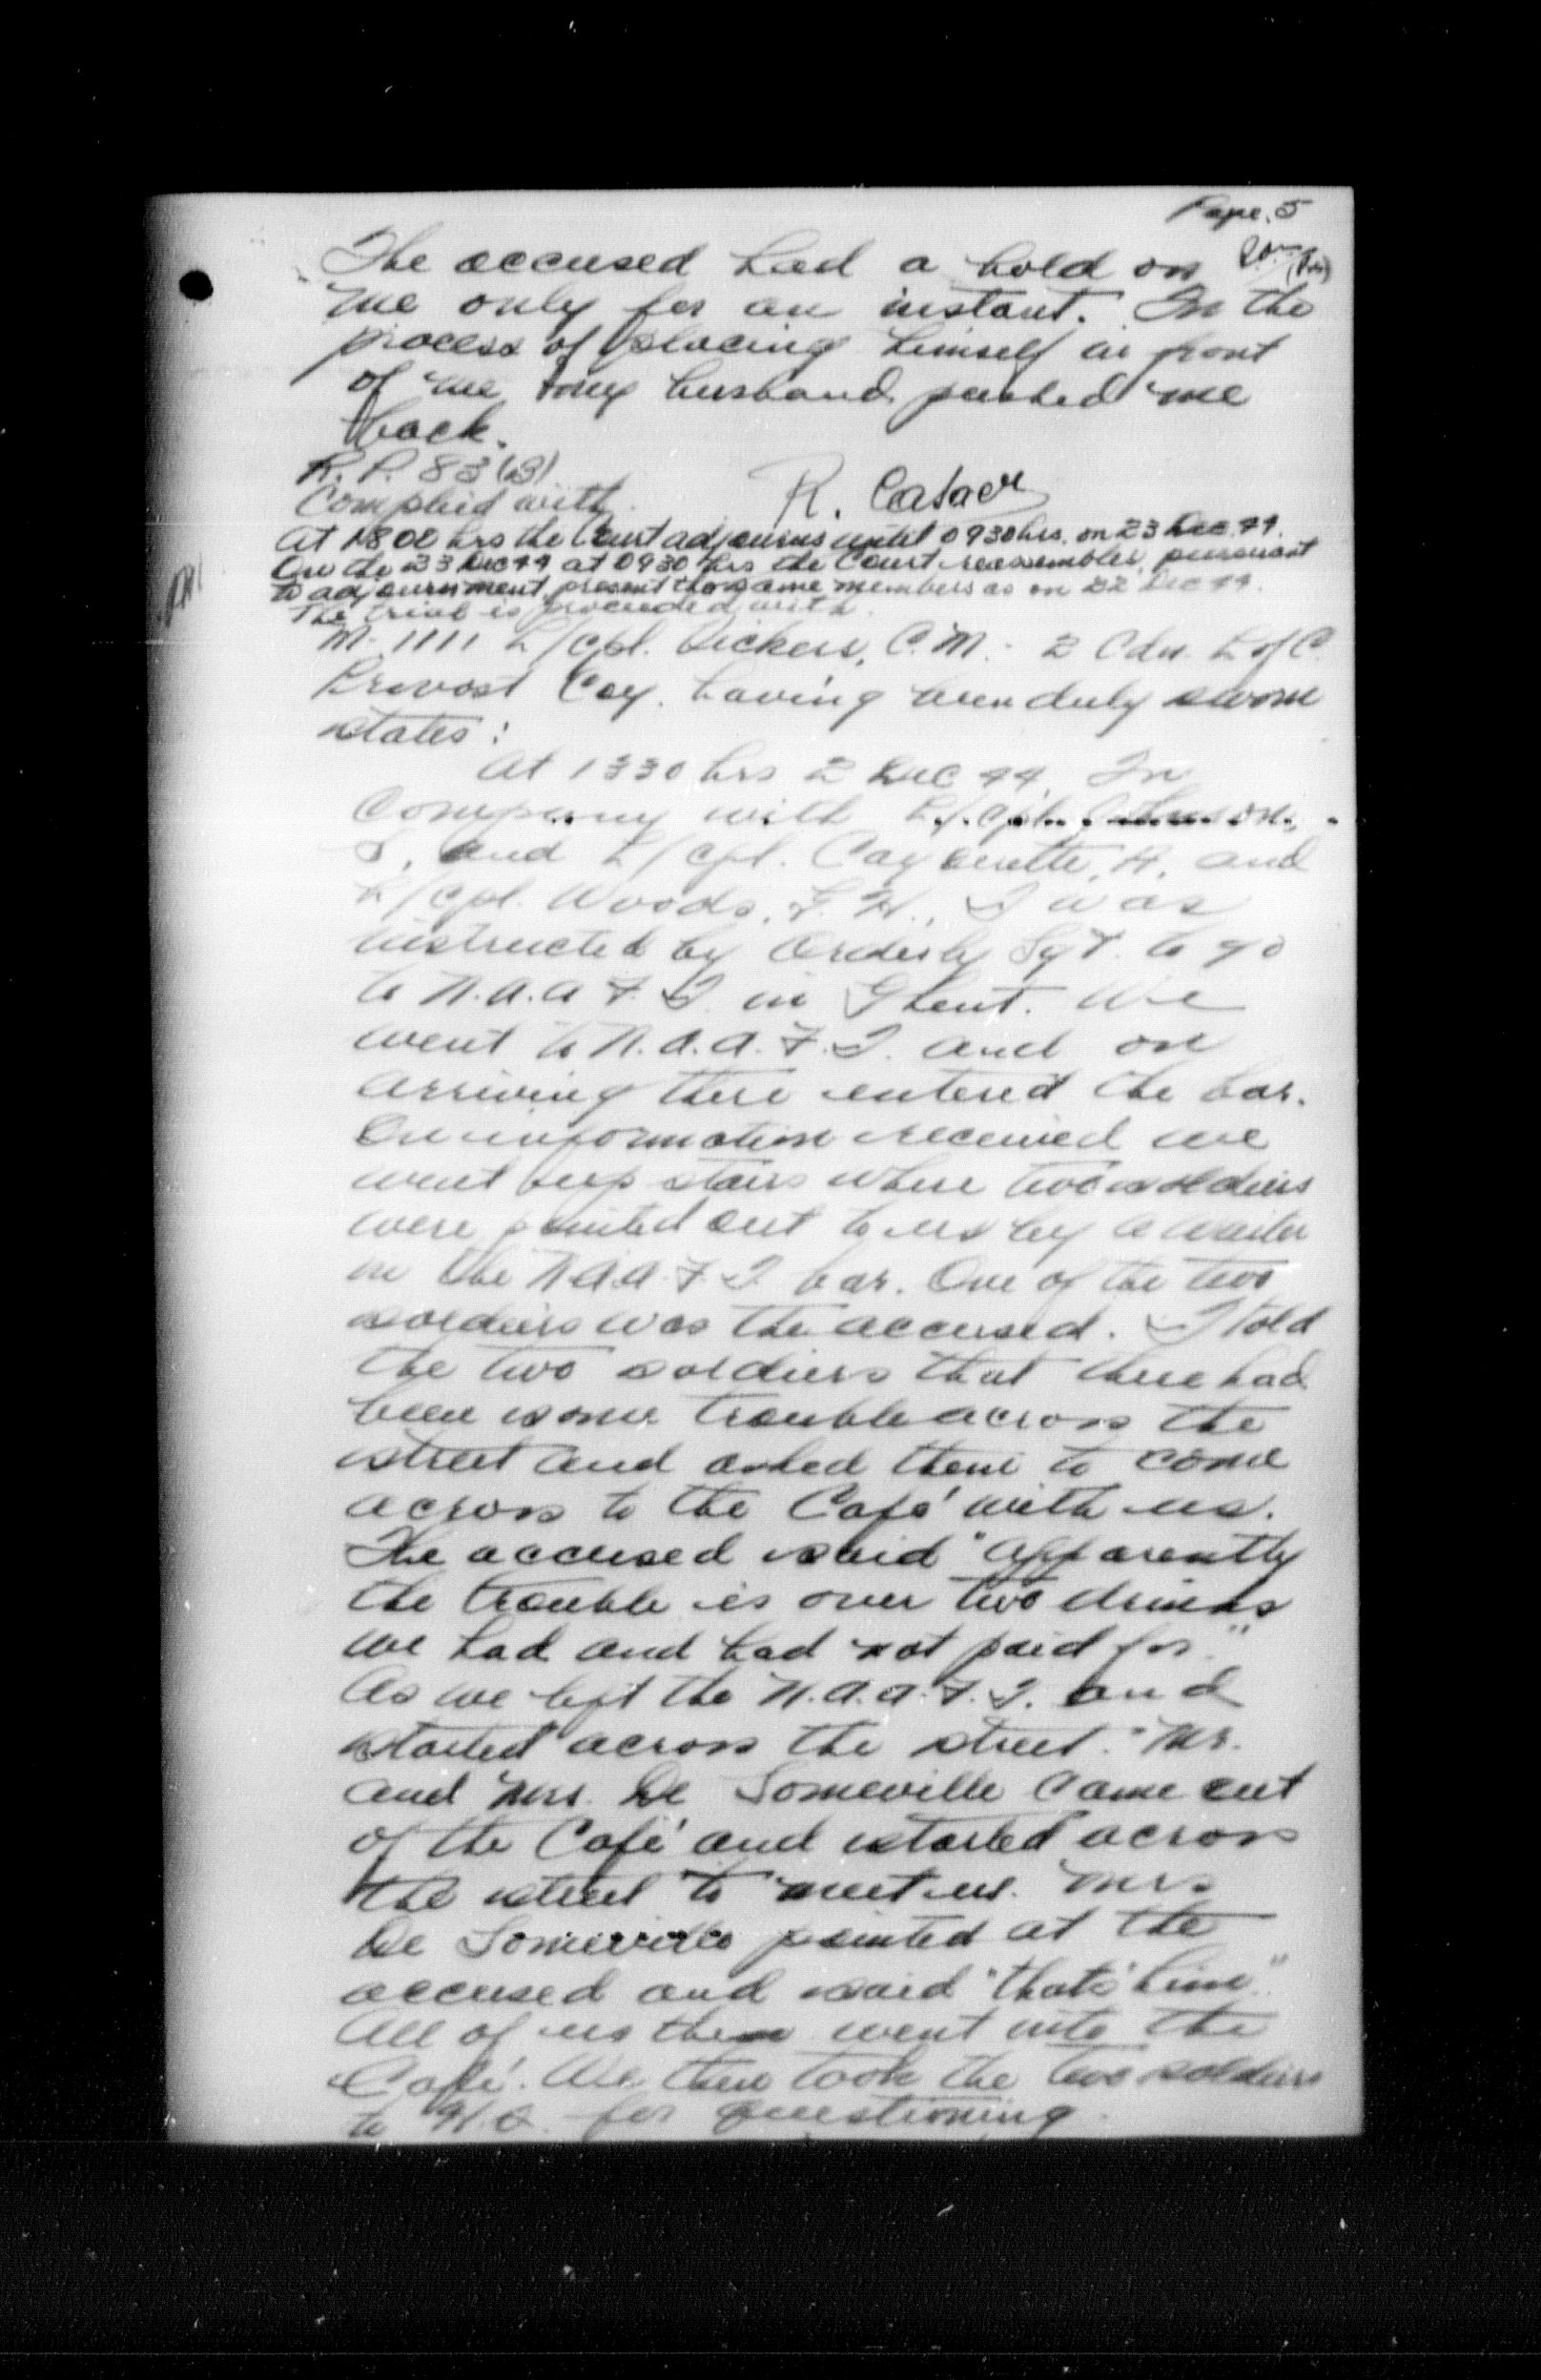 Page. 5
The accused had a hold on
me only for an instant. In the
process of placing himself in front
of me my husband pushed me
back.
R.P. 83 (B)
Complied with
R.
At 1800 hrs the Court adjourns until 0930 hrs. on 23 Dec 44.
On the 23 Dec 44 at 0930 hrs the Court reassembles, pursuant
to adjournment, present the same members as on 22 Dec 44.
The trial is proceeded with.
M. 1111 L/Cpl. Dickens, C.M. - 2 Cdn. L of C.
Provost Coy. having been duly sworn
states:
At 1330 hrs 2 Dec 44 In
Company with L/Cpl.
S. and L/Cpl. Cayouette, A. and
L/Cpl. Woods, F. H., I was
instructed by Orderly Sgt. to go
to N.A.A.F.I. in Ghent. We
went to N.A.A.F.I. and on
arriving there entered the bar.
On information received we
went up stairs where two soldiers
were pointed out to us by a waiter
in the N.A.A.F.I. bar. One of the two
soldiers was the accused. I told
the two soldiers that there had
been some trouble across the
street and asked them to come
across to the Café with us.
The accused said "Apparently
the trouble is over two drinks
we had and had not paid for."
As we left the N.A.A.F.I. and
started across the street. Mr.
and Mrs. De Someville came out
of the Café and started across
the street to meet us. Mrs
De Someville pointed at the
accused and said "that's him".
All of us then went into the
Café. We then took the two soldiers
to H.Q. for questioning.